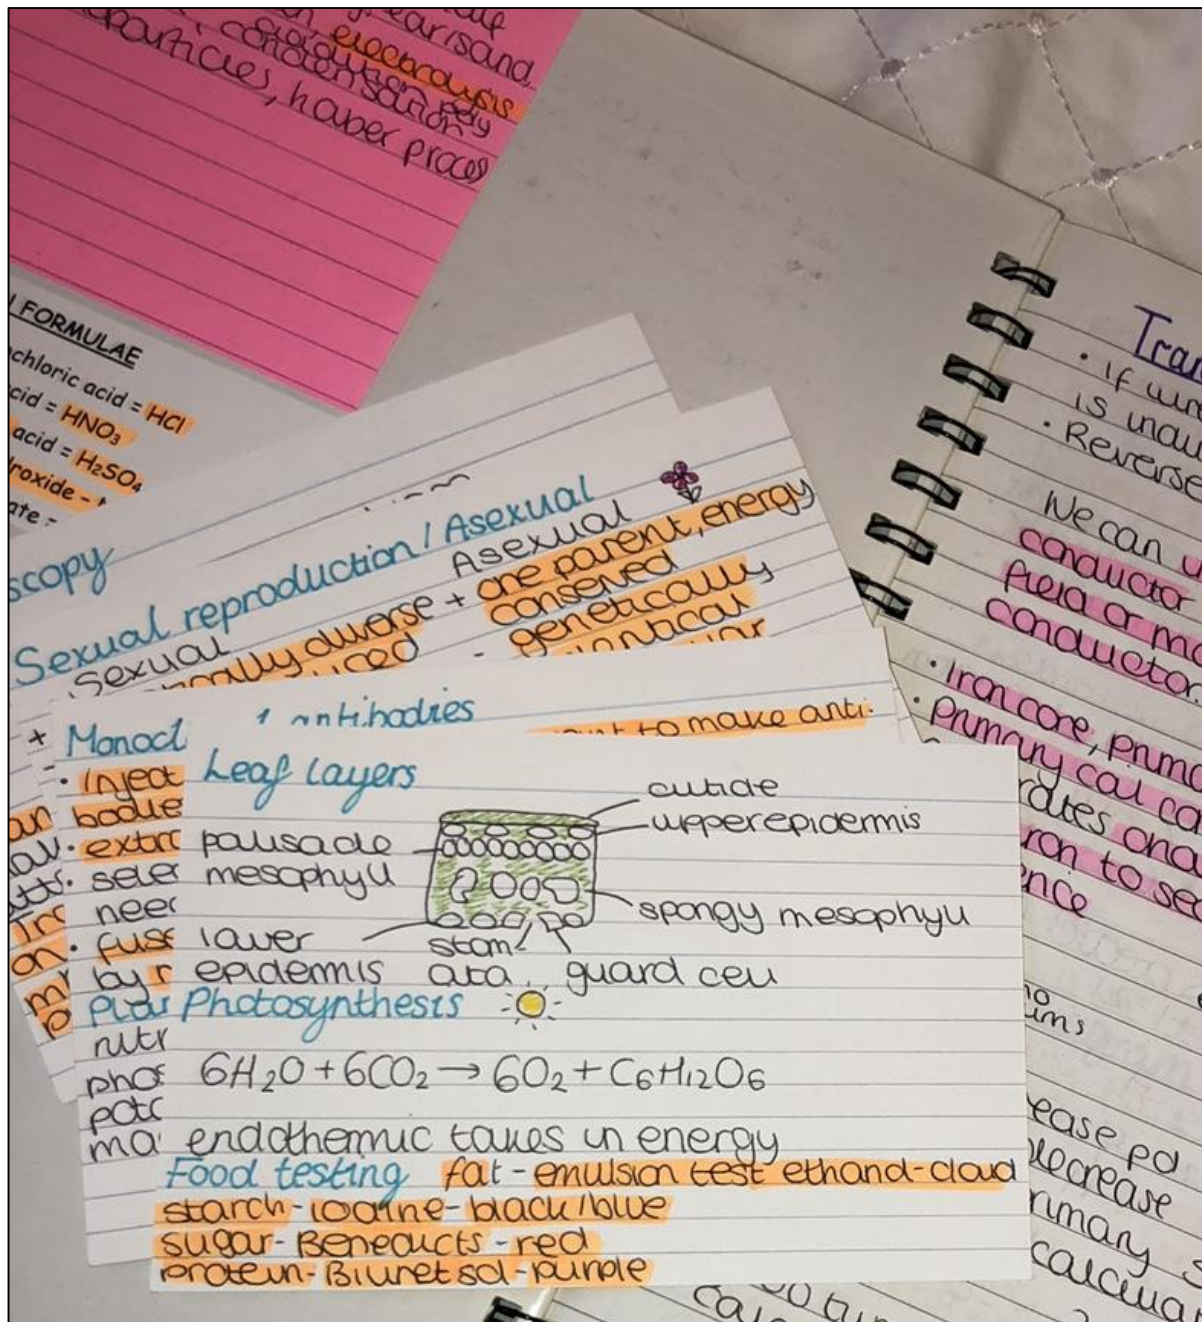 electrolysis
condensation poly
particles, haber proces
FORMULAE
chloric acid = HCl
cid = HNO₃
acid = H₂SO₄
roxide -
ate -
scopy
Sexual reproduction / Asexual
Sexual
Asexual
ally diverse + one parent, energy
conserved
- genetically
Monocl antibodies
to make anti-
• inject
bodie
• extrac
• selec
need
• fuse
by
Leaf layers
cuticle
upper epidermis
palisade
mesophyll
spongy mesophyll
lower
epidermis
stom-
ata
guard cell
Photosynthesis
6H₂O + 6CO₂ → 6O₂ + C₆H₁₂O₆
endothermic takes in energy
Food testing fat - emulsion test ethanol-cloud
starch - iodine - black/blue
sugar - Benedicts - red
protein - Biuret sol - purple
nitr
phos
pota
ma
Tran
• If wire
is indu
• Reverse
We can u
conductor
field or mo
conductor.
• Iron core, prima
• Primary coil ca
rates cha
ron to sec
ence
ease pd
decrease
rimary s
calcula